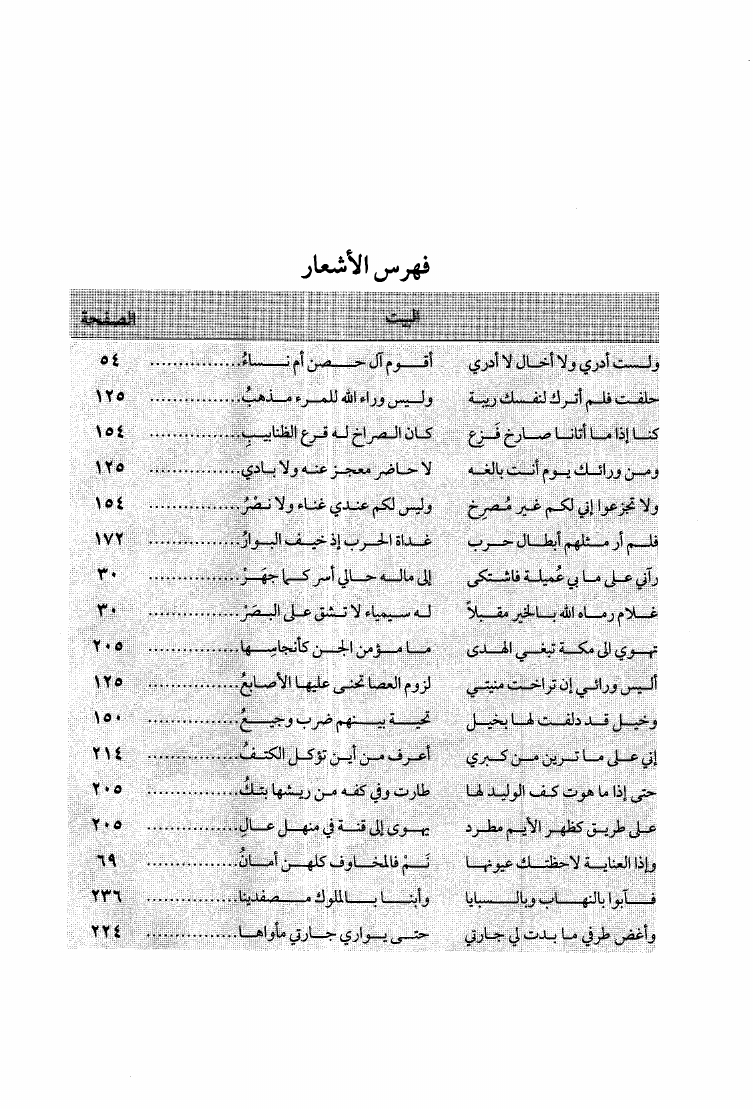 فهرس الأشعار
البيت الصفحة
ولست أدري ولا أخال لا أدري أقوم آل حصن أم نساءُ ................ ٥٤
حلفت فلم أترك لنفسك ريبة وليس وراء الله للمرء مذهبُ ................ ١٢٥
كنا إذا ما أتانا صارخ فَزِع كان الصراخ له قرع الظنابيبِ ................ ١٥٤
ومن ورائك يوم أنت بالغه لا حاضر معجز عنه ولا بادي ................ ١٢٥
ولا تجزعوا إني لكم غير مُصرِخ وليس لكم عندي غناء ولا نصْرُ ................ ١٥٤
فلم أر مثلهم أبطال حرب غداة الحرب إذ خيف البوارُ ................ ١٧٢
رآني على ما بي عُميلة فاشتكى إلى ماله حالي أسر كما جهَرْ ................ ٣٠
غلام رماه الله بالخير مقبلاً له سيمياء لا تشق على البصَرْ ................ ٣٠
تهوي الى مكة تبغي الهدى ما مؤمن الجن كأنجاسِها ................ ٢٠٥
أليس ورائي إن تراخت منيتي لزوم العصا تحنى عليها الأصابعُ ................ ١٢٥
وخيل قد دلفت لها بخيل تحية بينهم ضرب وجيعُ ................ ١٥٠
إني على ما ترين من كبري أعرف من أين تؤكل الكتفُ ................ ٢١٤
حتى إذا ما هوت كف الوليد لها طارت وفي كفه من ريشها بتكُ ................ ٢٠٥
على طريق كظهر الأيم مطرد يهوى إلى قنة في منهل عالِ ................ ٢٠٥
وإذا العناية لاحظتك عيونها نَمْ فالمخاوف كلهن أمانُ ................ ٦٩
فآبوا بالنهاب وبالسبايا وأبنا بالملوك مصفدينا ................ ٢٣٦
وأغض طرفي ما بدت لي جارتي حتى يواري جارتي مأواها ................ ٢٢٤